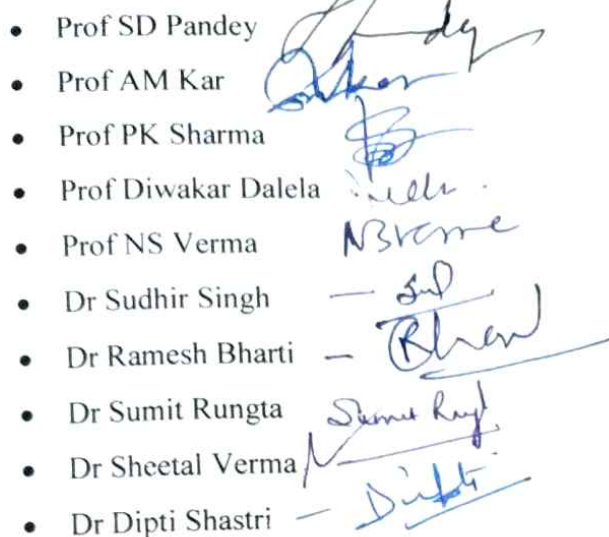 • Prof SD Pandey
• Prof AM Kar
• Prof PK Sharma
• Prof Diwakar Dalela
• Prof NS Verma
• Dr Sudhir Singh —
• Dr Ramesh Bharti —
• Dr Sumit Rungta Sumit Rungt
• Dr Sheetal Verma
• Dr Dipti Shastri — Dipti